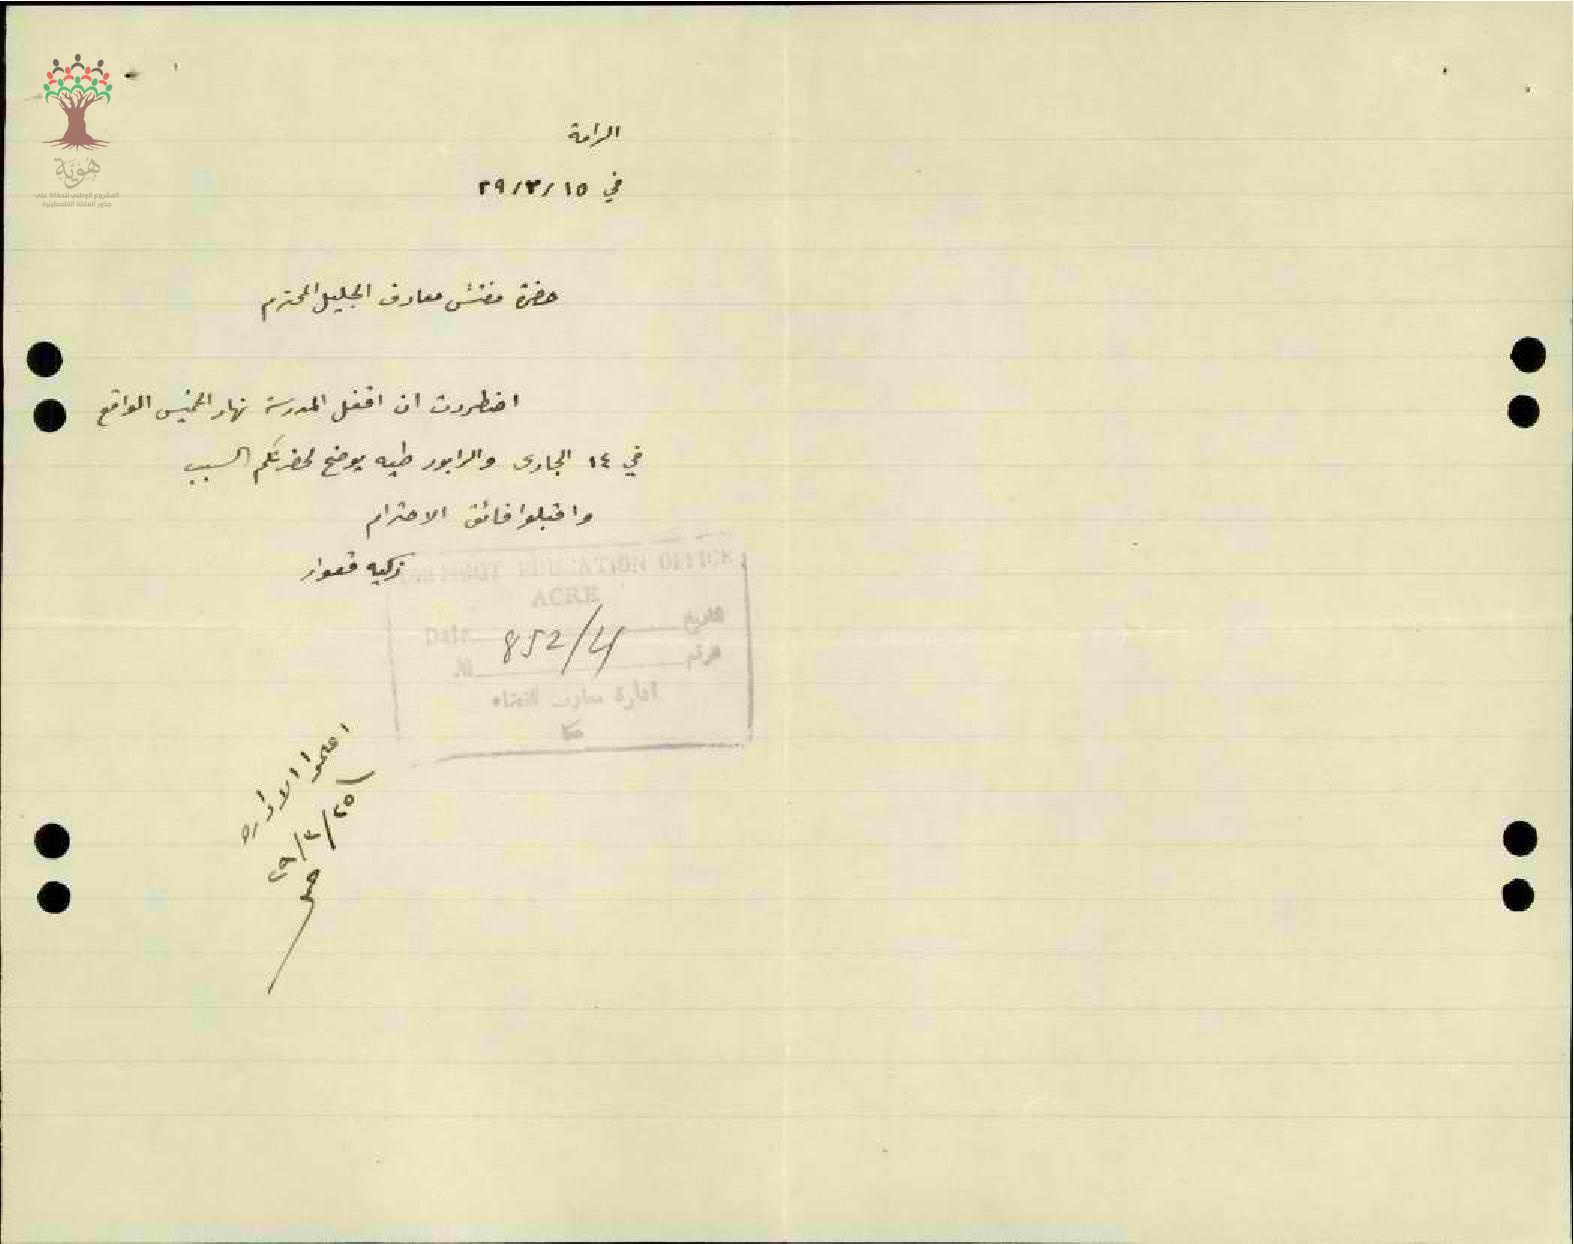 هُوِيَّة
المشروع الوطني للحفاظ على
جذور العائلة الفلسطينية
الرامة
في ١٥/٣/٢٩
حضرة مفتش معارف الجليل المحترم
اضطررت ان اقفل المدرسة نهار الخميس الواقع
في ١٤ الجاري والرابور طيه يوضح لحضرتكم السبب
واقبلوا فائق الاحترام
زكيه قعوار
DISTRICT EDUCATION OFFICE
ACRE
Date تاريخ
852/4
№ الرقم
ادارة معارف القضاء
عكا
الادارة
٢٥/٣/٢٩